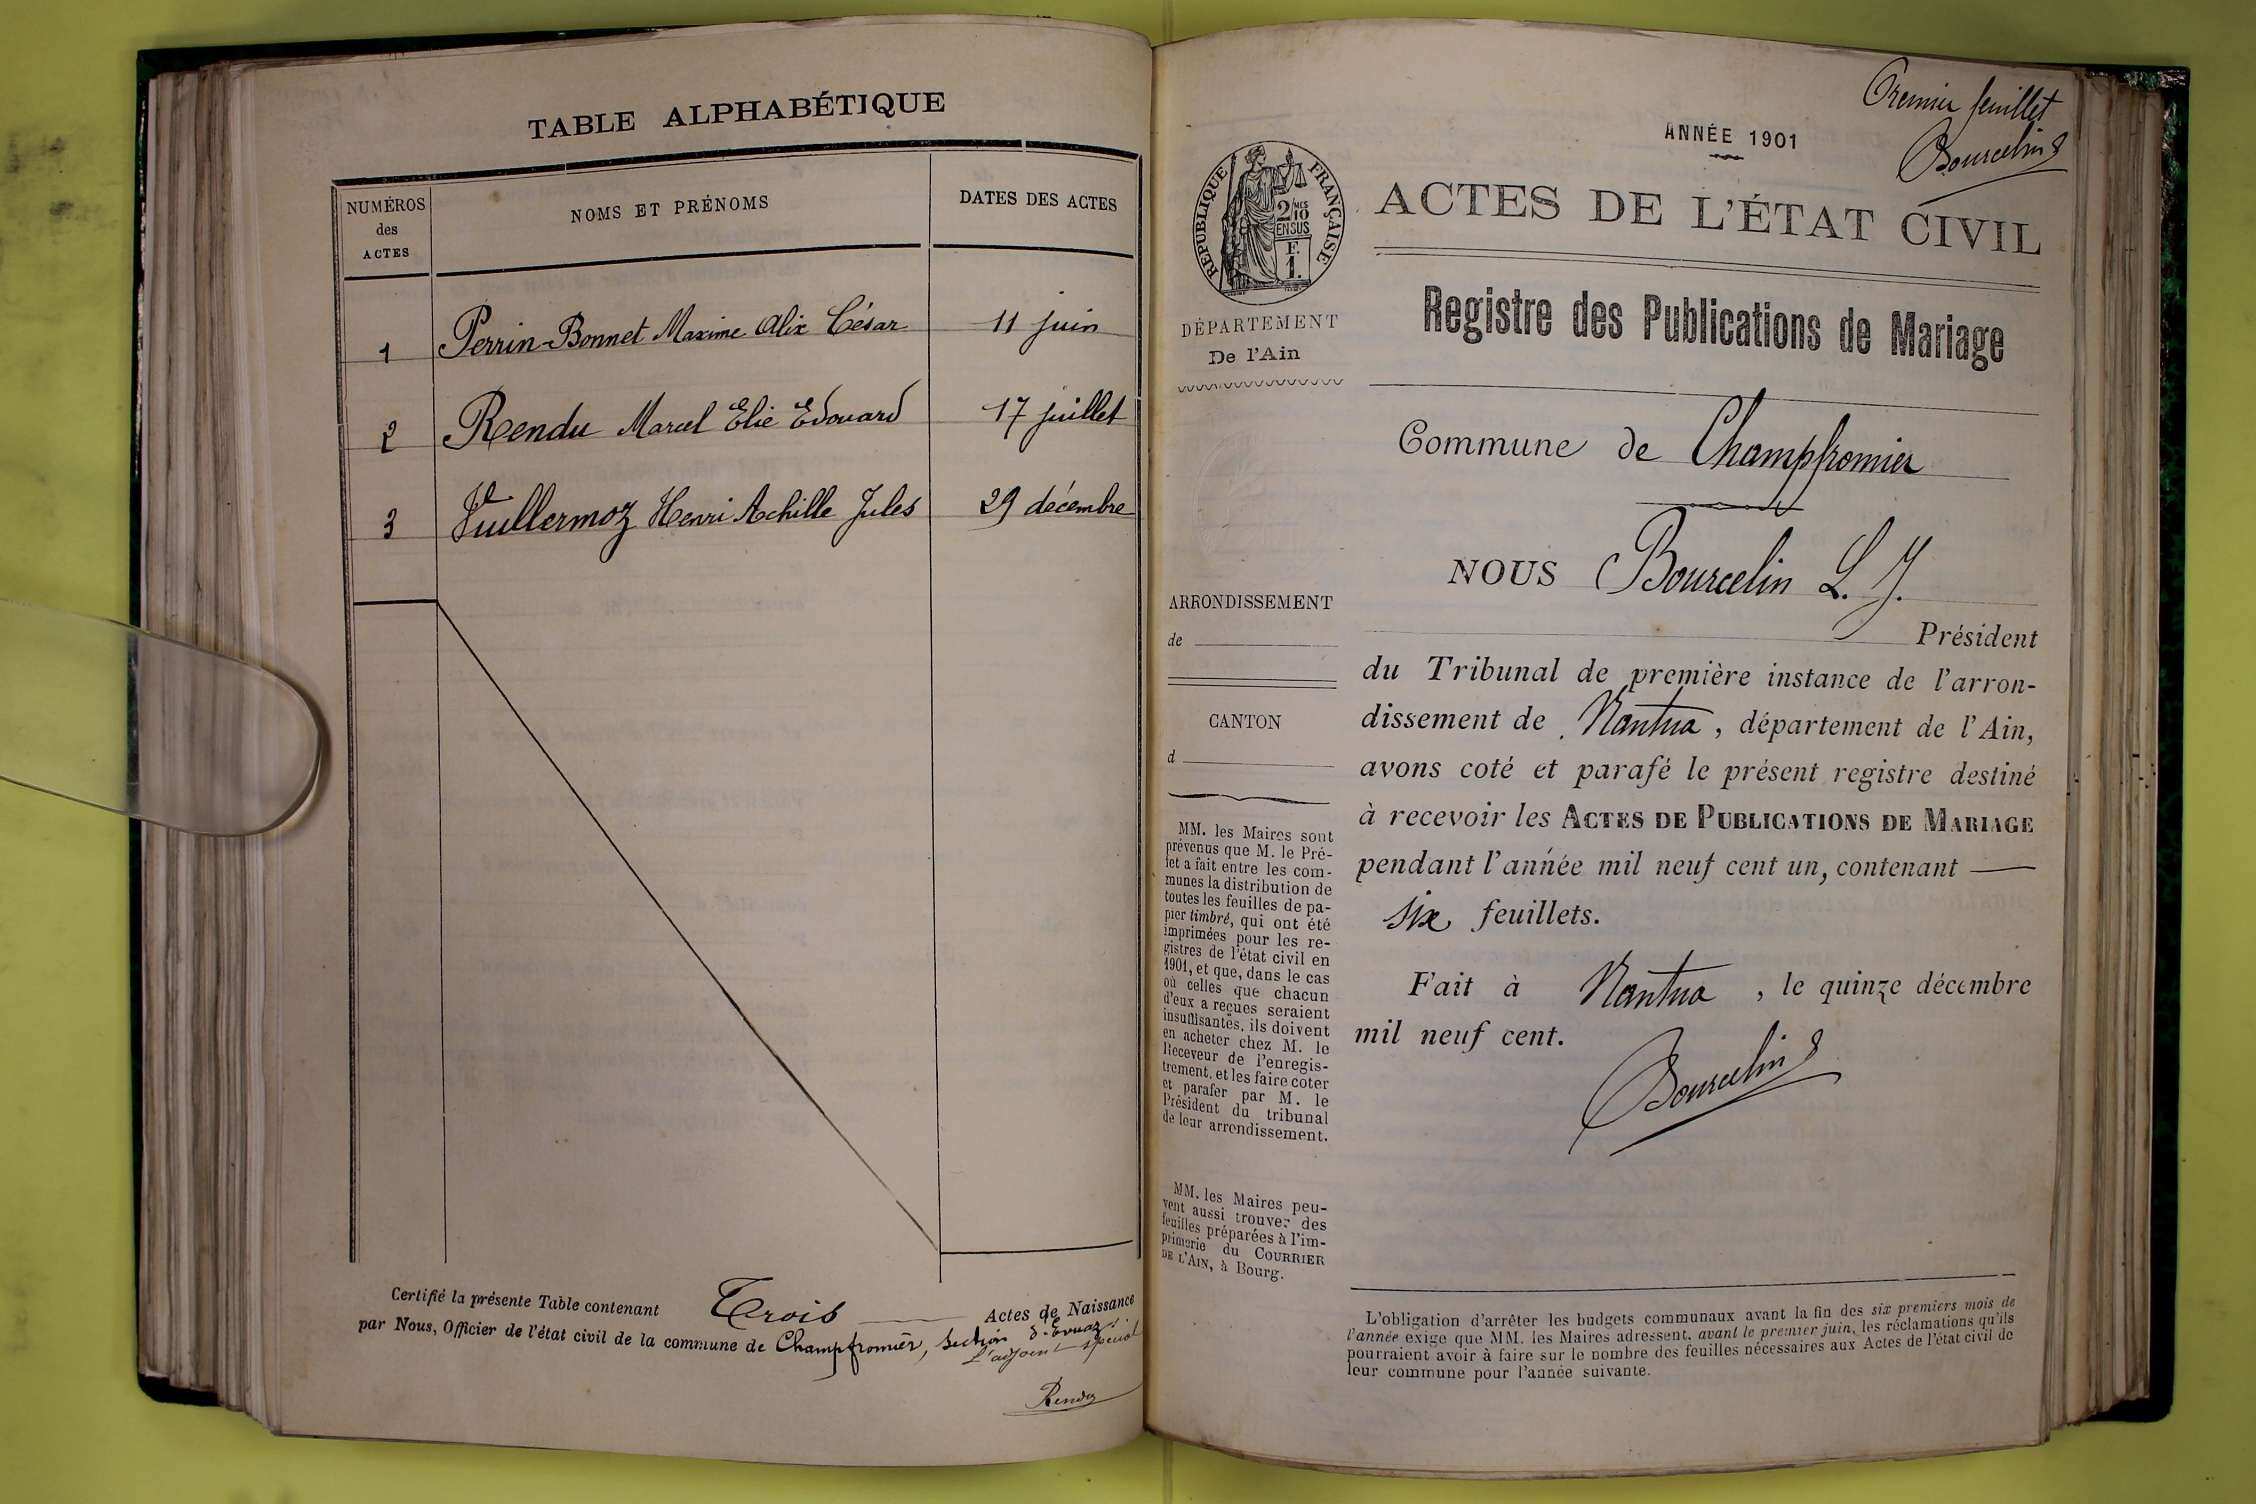 TABLE ALPHABÉTIQUE
NUMÉROS
des
ACTES
NOMS ET PRÉNOMS
DATES DES ACTES
1 Perrin-Bonnet Maxime Alix César 11 juin
2 Rendu Marcel Elie Edouard 17 juillet
3 Vuillermoz Henri Achille Jules 29 décembre
Certifié la présente Table contenant Trois Actes de Naissance
par Nous, Officier de l'état civil de la commune de Champfromier, section d'Evuaz.
L'adjoint spécial
Rendu
Premier feuillet
Bourcelin
ANNÉE 1901
ACTES DE L'ÉTAT CIVIL
RÉPUBLIQUE FRANÇAISE
2/10
MES
EN SUS
F.
1.
DÉPARTEMENT
De l'Ain
Registre des Publications de Mariage
Commune de Champfromier
NOUS Bourcelin L. J.
Président
du Tribunal de première instance de l'arron-
dissement de Nantua, département de l'Ain,
avons coté et parafé le présent registre destiné
à recevoir les ACTES DE PUBLICATIONS DE MARIAGE
pendant l'année mil neuf cent un, contenant
six feuillets.
Fait à Nantua, le quinze décembre
mil neuf cent.
Bourcelin
ARRONDISSEMENT
de
CANTON
d
MM. les Maires sont
prévenus que M. le Pré-
fet a fait entre les com-
munes la distribution de
toutes les feuilles de pa-
pier timbré, qui ont été
imprimées pour les re-
gistres de l'état civil en
1901, et que, dans le cas
où celles que chacun
d'eux a reçues seraient
insuffisantes, ils doivent
en acheter chez M. le
Receveur de l'enregis-
trement, et les faire coter
et parafer par M. le
Président du tribunal
de leur arrondissement.
MM. les Maires peu-
vent aussi trouver des
feuilles préparées à l'im-
primerie du COURRIER
DE L'AIN, à Bourg.
L'obligation d'arrêter les budgets communaux avant la fin des six premiers mois de
l'année exige que MM. les Maires adressent, avant le premier juin, les réclamations qu'ils
pourraient avoir à faire sur le nombre des feuilles nécessaires aux Actes de l'état civil de
leur commune pour l'année suivante.